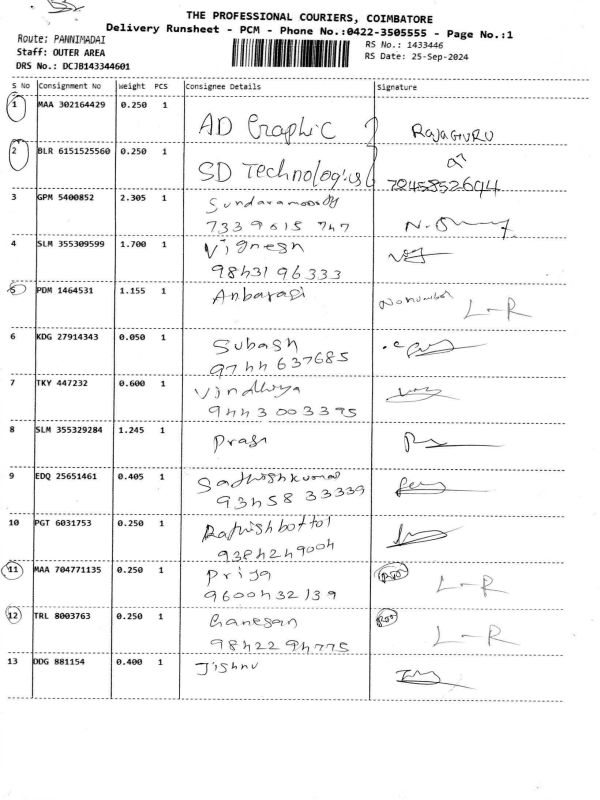 THE PROFESSIONAL COURIERS, COIMBATORE
Delivery Runsheet - PCM - Phone No.:0422-3505555 - Page No.:1
Route: PANNIMADAI
RS No.: 1433446
Staff: OUTER AREA
RS Date: 25-Sep-2024
DRS No.: DCJB143344601
S No Consignment No Weight PCS Consignee Details Signature
1 MAA 302164429 0.250 1
AD Graphic RAJAGURU
2 BLR 6151525560 0.250 1
SD Technologies
3 GPM 5400852 2.305 1
7339615 747
4 SLM 355309599 1.700 1 Vignesh
98431 96333
5 PDM 1464531 1.155 1 Anbarasi No number L-R
6 KDG 27914343 0.050 1 Subash
9744 637685
7 TKY 447232 0.600 1 Vindhya
9443 003395
8 SLM 355329284 1.245 1
9 EDQ 25651461 0.405 1 Sadhishkumar
93458 33339
10 PGT 6031753 0.250 1
9384249004
11 MAA 704771135 0.250 1 Priya
9600432139 L-R
12 TRL 8003763 0.250 1 Ganesan
98422 94775 L-R
13 DDG 881154 0.400 1 Jishnu